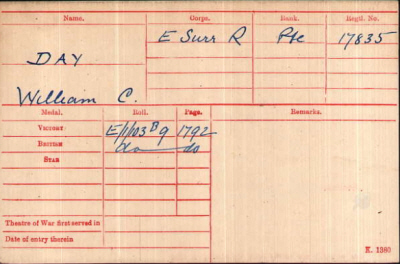 Name. Corps. Rank. Regtl. No.
E Surr R Pte 17835
DAY
William C.
Medal. Roll. Page. Remarks.
VICTORY E/1/103 B9 1792
BRITISH do do
STAR
Theatre of War first served in
Date of entry therein
K. 1380